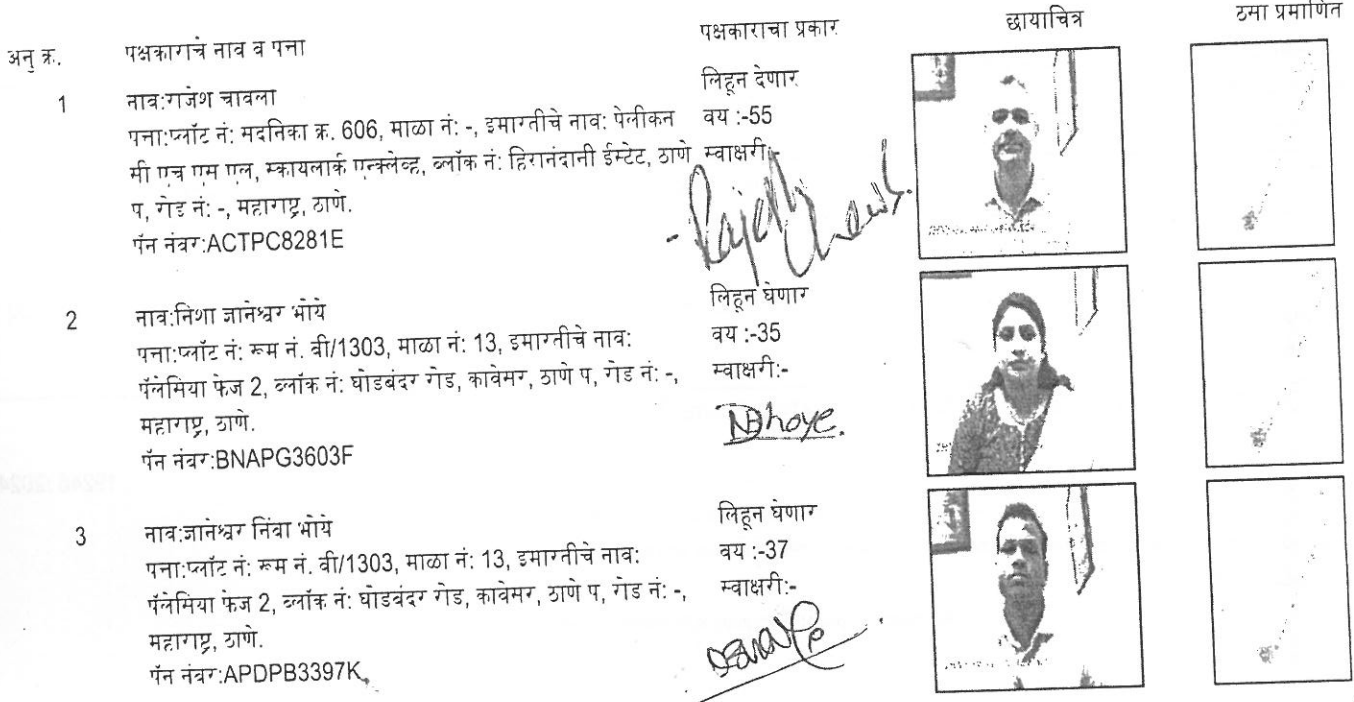 अनु क्र. पक्षकाराचे नाव व पत्ता पक्षकाराचा प्रकार छायाचित्र ठसा प्रमाणित
1 नाव:राजेश चावला
पत्ता:प्लॉट नं: सदनिका क्र. 606, माळा नं: -, इमारतीचे नाव: पेलीकन
सी एच एस एल, स्कायलार्क एन्क्लेव्ह, ब्लॉक नं: हिरानंदानी ईस्टेट, ठाणे
प, रोड नं: -, महाराष्ट्र, ठाणे.
पॅन नंबर:ACTPC8281E
लिहून देणार
वय :-55
स्वाक्षरी:-
2 नाव:निशा ज्ञानेश्वर भोये
पत्ता:प्लॉट नं: रूम नं. बी/1303, माळा नं: 13, इमारतीचे नाव:
पॅलेसिया फेज 2, ब्लॉक नं: घोडबंदर रोड, कावेसर, ठाणे प, रोड नं: -,
महाराष्ट्र, ठाणे.
पॅन नंबर:BNAPG3603F
लिहून घेणार
वय :-35
स्वाक्षरी:-
NBhoye.
3 नाव:ज्ञानेश्वर निंबा भोये
पत्ता:प्लॉट नं: रूम नं. बी/1303, माळा नं: 13, इमारतीचे नाव:
पॅलेसिया फेज 2, ब्लॉक नं: घोडबंदर रोड, कावेसर, ठाणे प, रोड नं: -,
महाराष्ट्र, ठाणे.
पॅन नंबर:APDPB3397K
लिहून घेणार
वय :-37
स्वाक्षरी:-